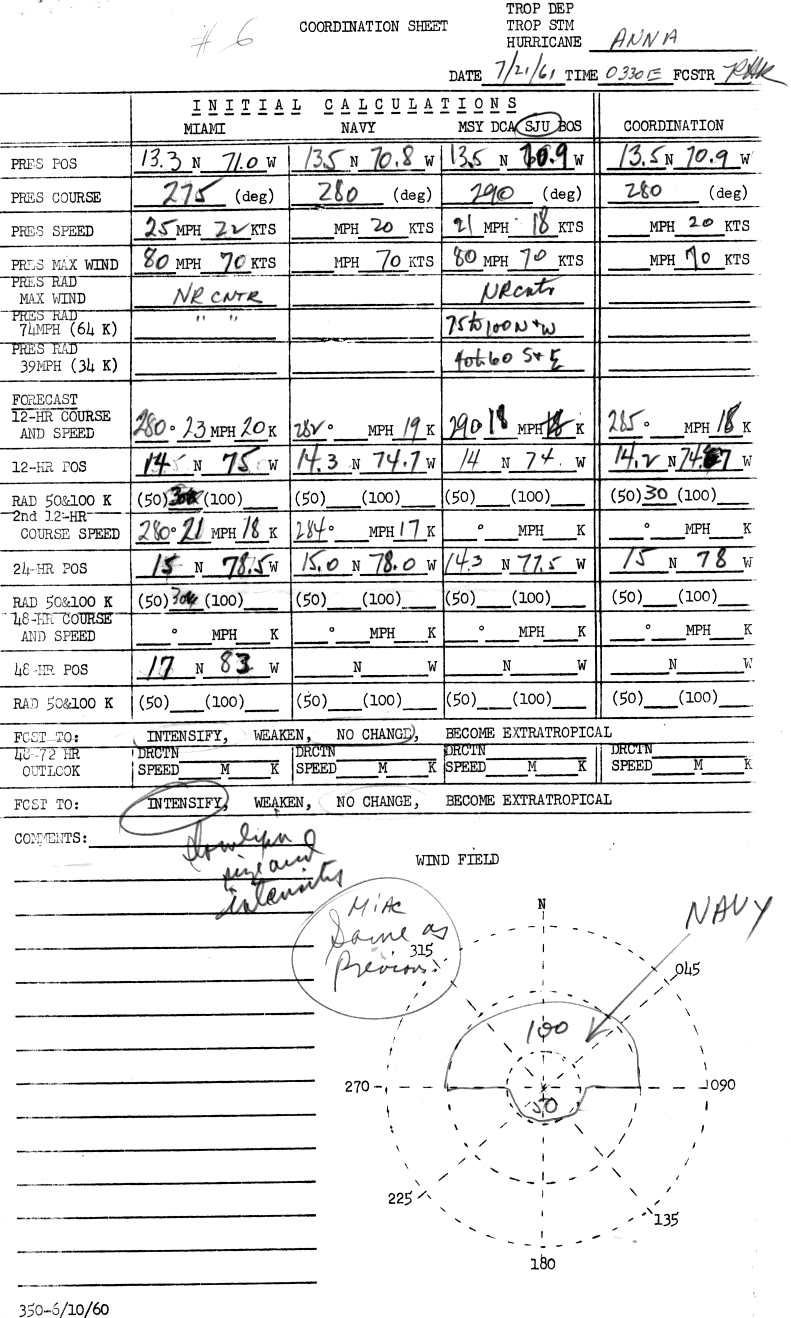 # 6
COORDINATION SHEET
TROP DEP
TROP STM
HURRICANE ANNA
DATE 7/21/61 TIME 0330E FCSTR
INITIAL CALCULATIONS
MIAMI NAVY MSY DCA SJU BOS COORDINATION
PRES POS 13.3 N 71.0 W 13.5 N 70.8 W 13.5 N 70.9 W 13.5 N 70.9 W
PRES COURSE 275 (deg) 280 (deg) 290 (deg) 280 (deg)
PRES SPEED 25 MPH 22 KTS MPH 20 KTS 21 MPH 18 KTS MPH 20 KTS
PRES MAX WIND 80 MPH 70 KTS MPH 70 KTS 80 MPH 70 KTS MPH 70 KTS
PRES RAD
MAX WIND NR CNTR NR cntr
PRES RAD
74MPH (64 K) " " 75 to 100 N + W
PRES RAD
39MPH (34 K) 40 to 60 S + E
FORECAST
12-HR COURSE
AND SPEED 280 ° 23 MPH 20 K 282 ° MPH 19 K 290 18 MPH 18 K 285 ° MPH 18 K
12-HR POS 14.5 N 75 W 14.3 N 74.7 W 14 N 74. W 14.2 N 74.7 W
RAD 50&100 K (50) 30 (100) (50) (100) (50) (100) (50) 30 (100)
2nd 12-HR
COURSE SPEED 280 ° 21 MPH 18 K 284 ° MPH 17 K ° MPH K ° MPH K
24-HR POS 15 N 78.5 W 15.0 N 78.0 W 14.3 N 77.5 W 15 N 78 W
RAD 50&100 K (50) 30 (100) (50) (100) (50) (100) (50) (100)
48-HR COURSE
AND SPEED ° MPH K ° MPH K ° MPH K ° MPH K
48-HR POS 17 N 83 W N W N W N W
RAD 50&100 K (50) (100) (50) (100) (50) (100) (50) (100)
FCST TO: INTENSIFY, WEAKEN, NO CHANGE, BECOME EXTRATROPICAL
48-72 HR DRCTN DRCTN DRCTN DRCTN
OUTLOOK SPEED M K SPEED M K SPEED M K SPEED M K
FCST TO: INTENSIFY, WEAKEN, NO CHANGE, BECOME EXTRATROPICAL
COMMENTS:
size and
intensity
WIND FIELD
MIAC
Same as
Previous
NAVY
N
315
045
100
270
090
50
225
135
180
350-6/10/60